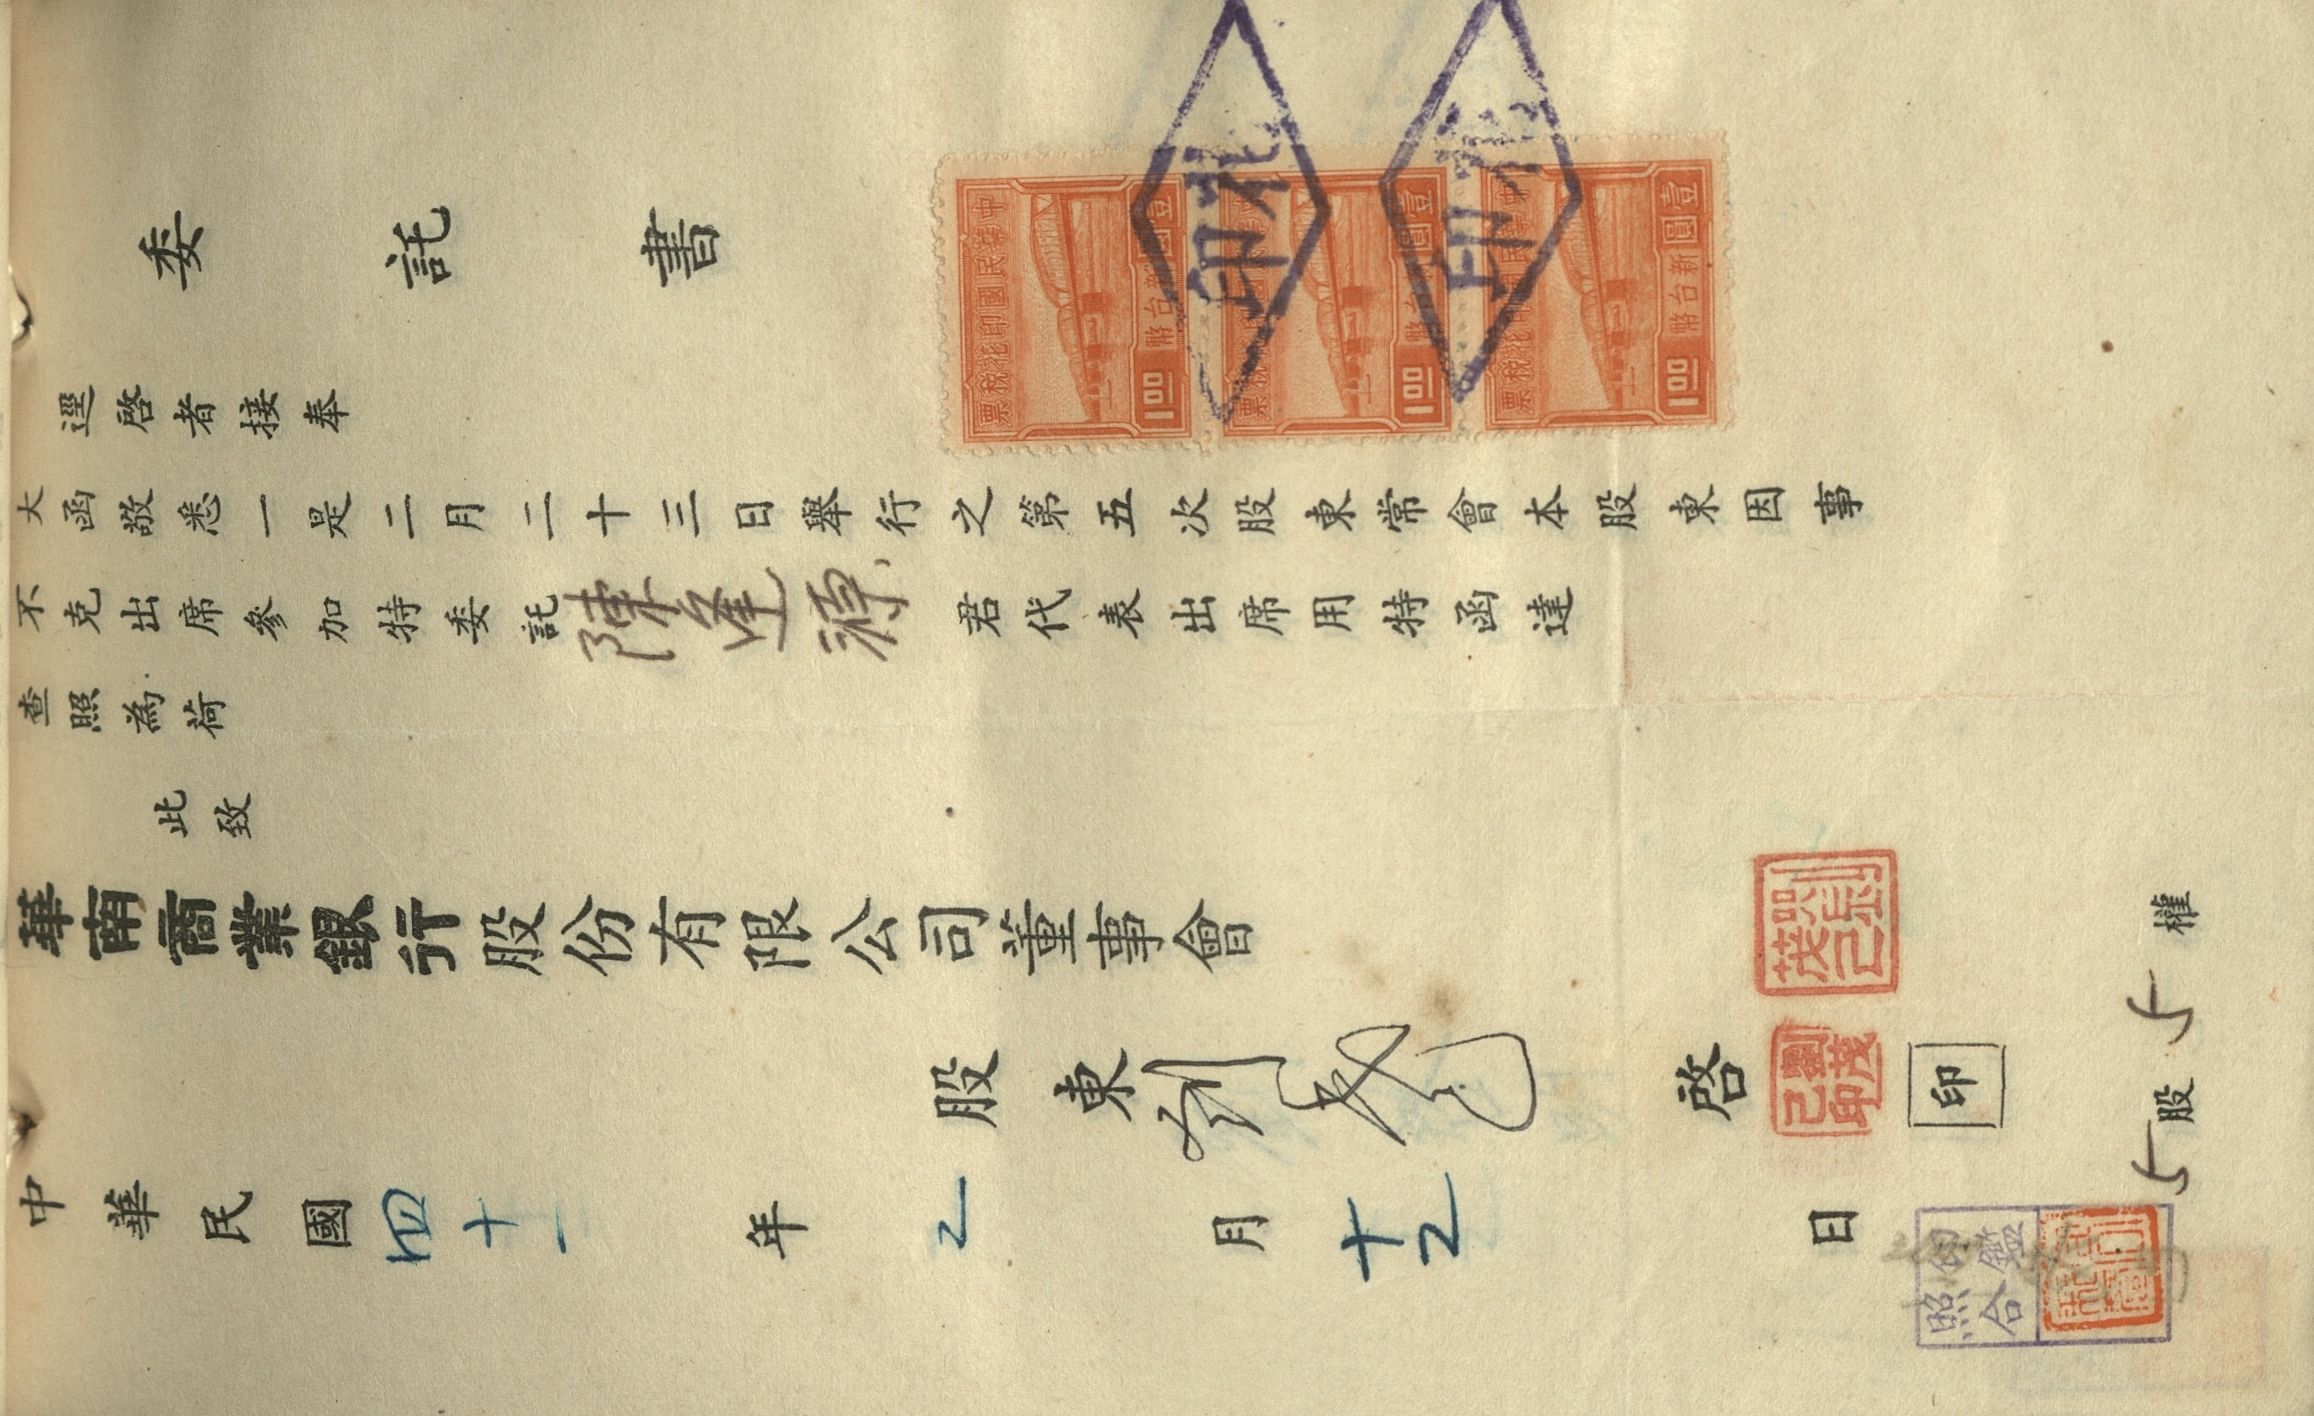 委託書
逕啓者接奉
大函敬悉一是二月二十三日舉行之第五次股東常會本股東因事
不克出席參加特委託陳逢源君代表出席用特函達
查照為荷
此致
華南商業銀行股份有限公司董事會
股東劉茂己啓
印
劉茂己印
5股5權
中華民國四十一年2月十2日
印鑑
照合
中華民國印花稅票
新台幣
壹圓
1.00
中華民國印花稅票
新台幣
壹圓
1.00
中華民國印花稅票
新台幣
壹圓
1.00